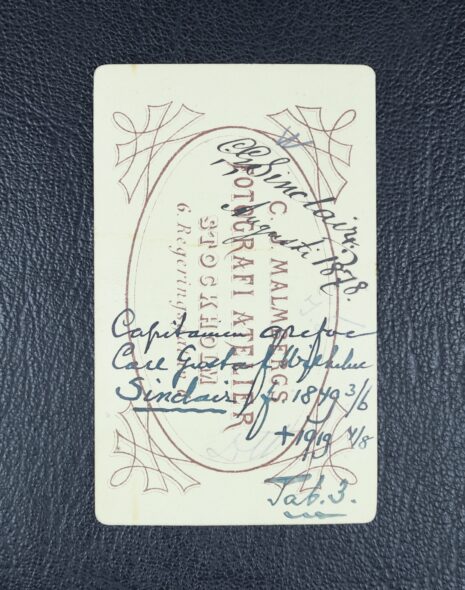 Sinclair.
Augusti 1878.
C. J. MALMBERGS
FOTOGRAFI ATELIER
STOCKHOLM
6. Regerings
Capitainen grefve
Carl Gustaf Wilhelm
Sinclair f 1849 3/6
+ 1919 4/8
Tab. 3.